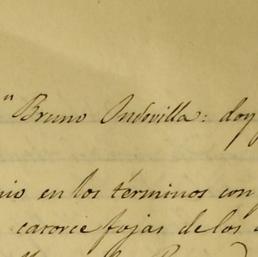 " Bruno Indovilla: doy
nio en los términos con
catorce fojas de los